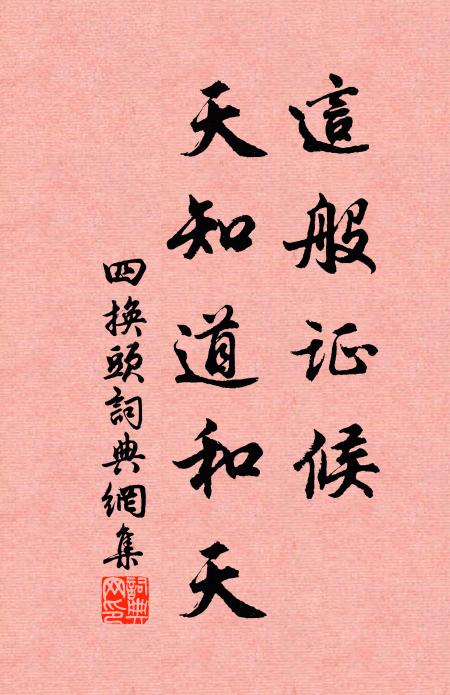 這般证候
天知道和天
四換頭詞典網集
詞典網印